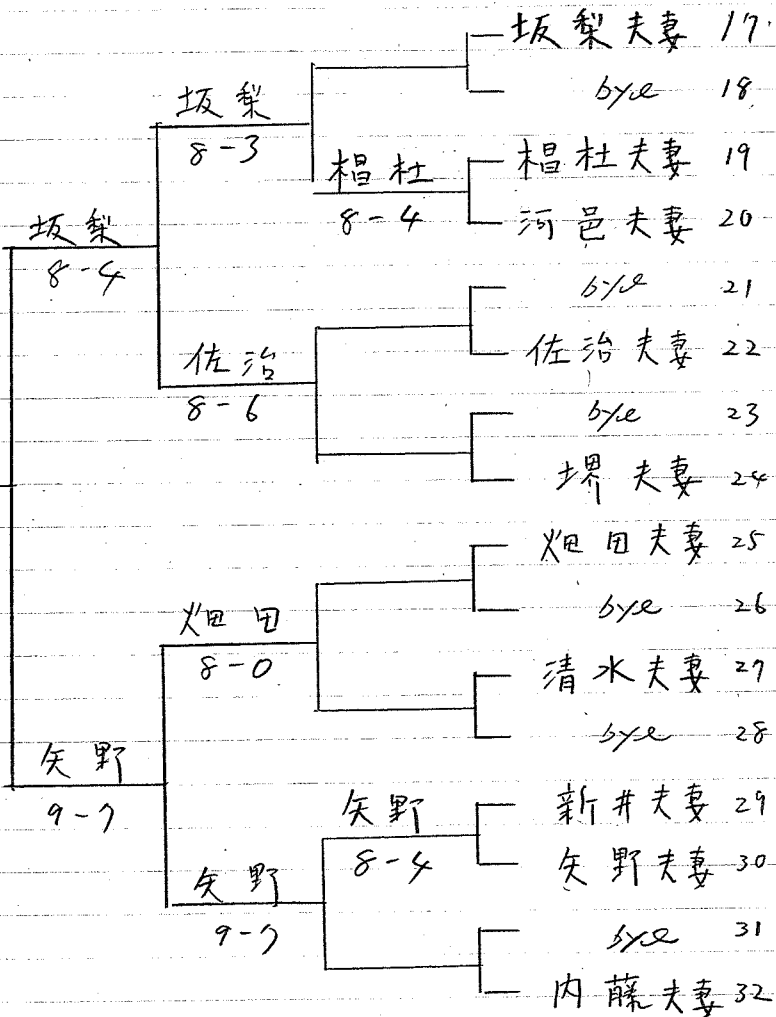 坂梨夫妻 17
bye 18
椙杜夫妻 19
河邑夫妻 20
bye 21
佐治夫妻 22
bye 23
堺夫妻 24
畑田夫妻 25
bye 26
清水夫妻 27
bye 28
新井夫妻 29
矢野夫妻 30
bye 31
内藤夫妻 32
椙杜
8-4
矢野
8-4
坂梨
8-3
佐治
8-6
畑田
8-0
矢野
9-7
坂梨
8-4
矢野
9-7